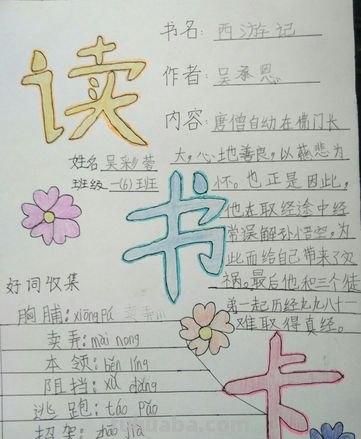 读
书
卡
书名: 西游记
作者: 吴承恩
内容: 唐僧自幼在佛门长
大,心地善良,以慈悲为
怀。也正是因此,
他在取经途中经
常误解孙悟空,为
此而给自己带来了灾
祸。最后他和三个徒
弟一起历经九九八十一
难取得真经。
姓名 吴彩蓉
班级 一(6)班
好词收集
胸脯: xiōng pú 卖弄
卖弄: mài nong
本领: běn lǐng
阻挡: dǎng
逃跑: táo pǎo
招架: zhāo jià